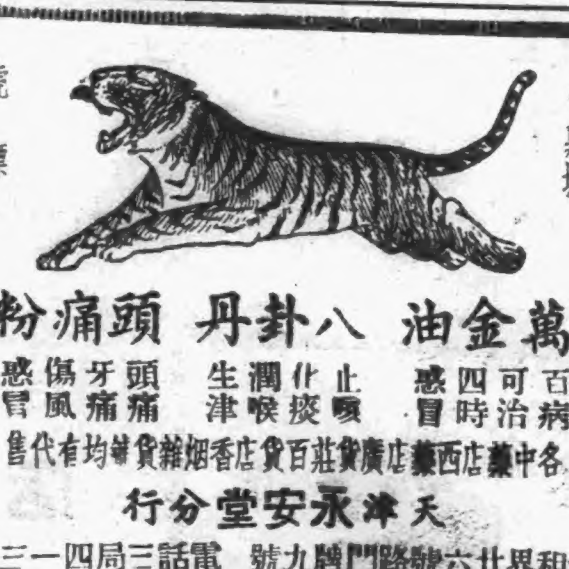 虎標
萬金油 八卦丹 頭痛粉
百病可治四時感冒
止咳化痰潤喉生津
頭痛牙痛傷風感冒
各中藥店西藥店廣貨莊百貨店香烟雜貨舖均有代售
天津永安堂分行
和界廿六號路門牌九號 電話三局四一三